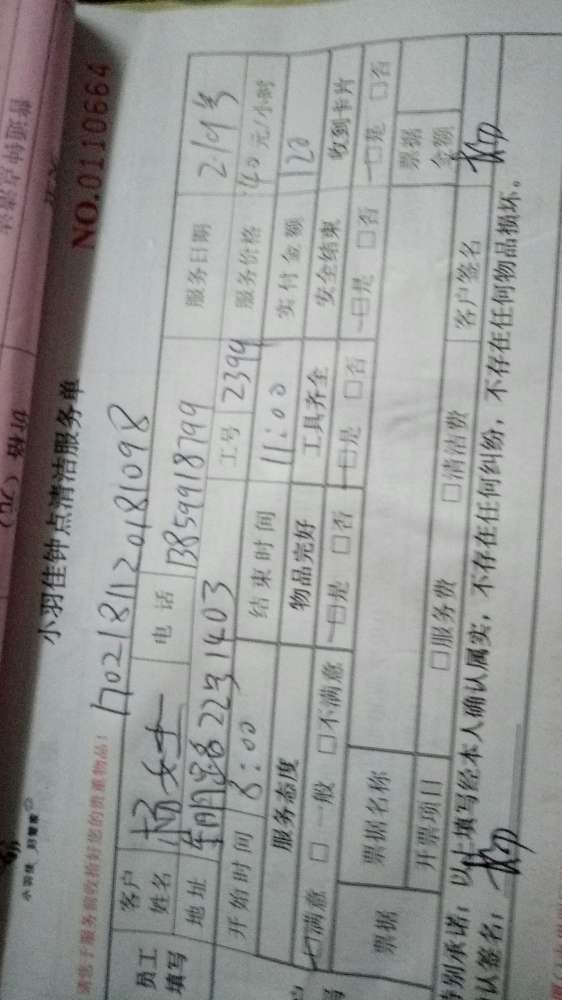 小羽佳钟点清洁服务单
NO.0110664
请您于服务前收拾好您的贵重物品:
170218112018 1098
员工填写
客户姓名 杨女士 电话 13859918799 服务日期 2.19号
地址 223 1403 工号 2399 服务价格 40元/小时
开始时间 8:00 结束时间 11:00 实付金额 120
服务态度 物品完好 工具齐全 安全结束 收到卡片
☑满意 □一般 □不满意 ☑是 □否 ☑是 □否 ☑是 □否 ☑是 □否
票据 票据名称 票据金额
开票项目 □服务费 □清洁费 客户签名 杨
特别承诺:以上填写经本人确认属实,不存在任何纠纷,不存在任何物品损坏。
认签名: 杨